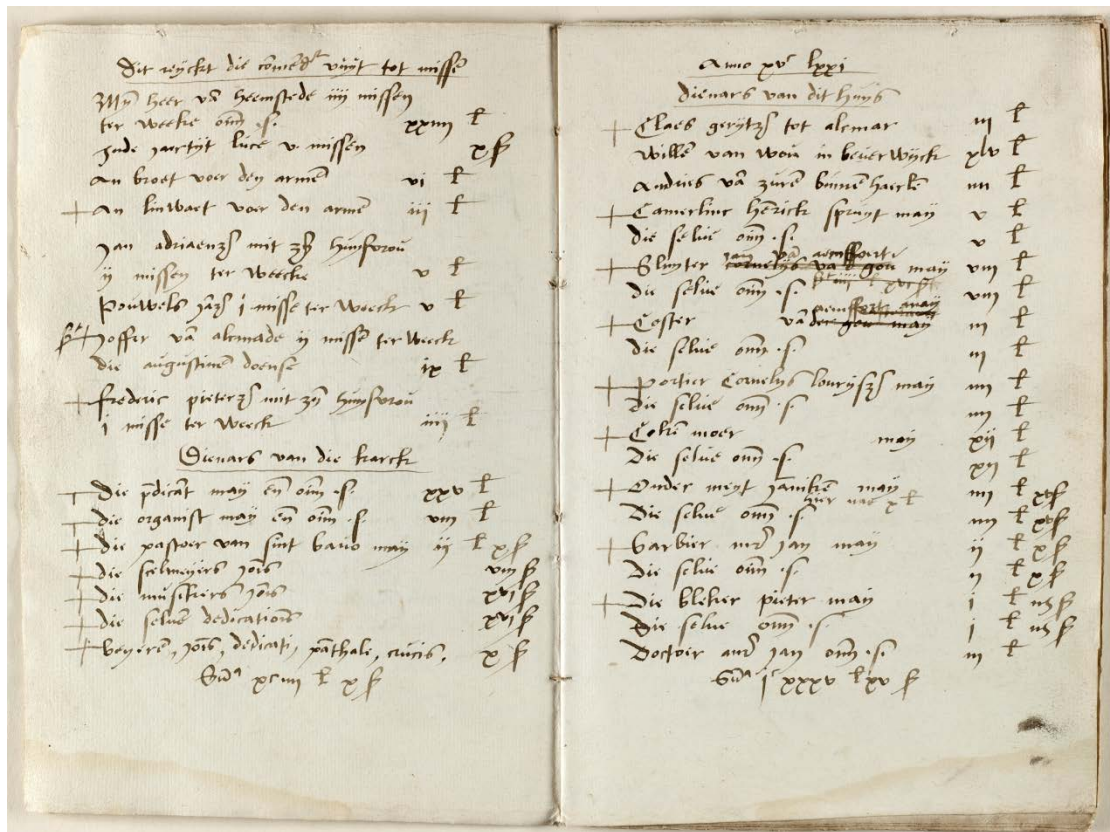 Dit reyckt die comēdr vuyt tot missē
Myn heer vā heemstede iiij missen
ter weecke om̄ .s. xxiiij l
Inde martijt luce v missen x ß
An broet voer den armē vi l
An linwaet voer den armē iij l
Jan adriaenzß mit zȳ huysvrou
ij missen ter weecke v l
Pouwels jāzß i misse ter weeck v l
Joffer vā alcmade ij missē ter weeck
die augustinen doense ix l
frederic pieterzß mit zyn huysvrou
i misse ter weeck iiij l
Dienars van die karck
Die p̄dicāt may en̄ om̄ .s. xxv l
Die organist may en̄ om̄ .s. viij l
Die pastoer van sint bavo may ij l x ß
Die scelmeyers joīs viij ß
Die musikers joīs xvi ß
Die selve dedicationis xvi ß
beyeren, joīs, dedicati, pāthale, crucis, x ß
Sūa xciiij l x ß
Anno xvc lxxi
Dienars van dit huys
Claes gerytzß tot alcmar iij l
Willē van wou in beverwijck xlv l
Andries vā zuren binnē haerlē iiij l
Camerlinc henrick spruyt may v l
die selve om̄ .s. v l
Sluyter jan vā aemsfoorte may viij l
die selve om̄ .s. viij l
Coster van aemsfoort may iij l
die selve om̄ .s. iij l
portier Cornelys louryszß may iiij l
Die selve om̄ .s. iiij l
Cokē moer may xij l
Die selve om̄ .s. xij l
Onder meyt janikē may iiij l xv ß
hier nae x l
Die selve om̄ .s. iiij l xv ß
barbier mr jan may ij l x ß
Die selve om̄ .s. ij l x ß
Die bleker pieter may i l
Die selve om̄ .s. i l
Doctoer jan om̄ .s. iij l
Sūa ic xxxv l xv ß